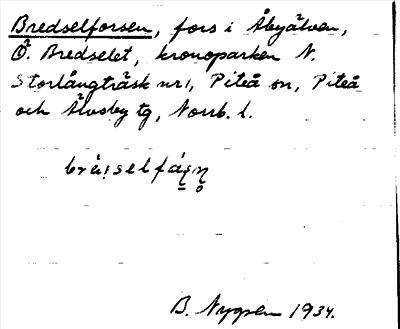 Bredselforsen, fors i Åbyälven,
Ö. Bredselet, kronoparken N.
Storlångträsk nr 1, Piteå sn, Piteå
och Älvsby tg, Norrb. l.
B. Nygren 1934.